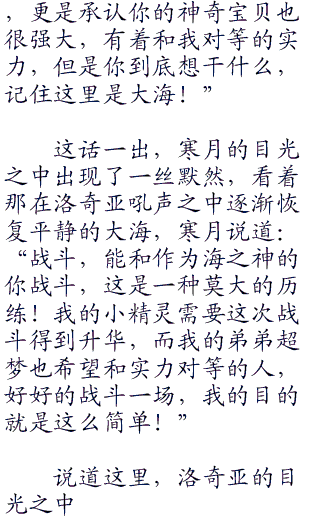 ，更是承认你的神奇宝贝也
很强大，有着和我对等的实
力，但是你到底想干什么，
记住这里是大海！”
这话一出，寒月的目光
之中出现了一丝默然，看着
那在洛奇亚吼声之中逐渐恢
复平静的大海，寒月说道：
“战斗，能和作为海之神的
你战斗，这是一种莫大的历
练！我的小精灵需要这次战
斗得到升华，而我的弟弟超
梦也希望和实力对等的人，
好好的战斗一场，我的目的
就是这么简单！”
说道这里，洛奇亚的目
光之中